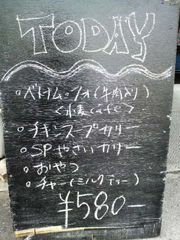 TODAY
○ベトナム・フォ(牛肉入り)
○チキンスープカリー
○SPやさいカリー
○おやつ
○チャー(ミルクティー)
¥580-